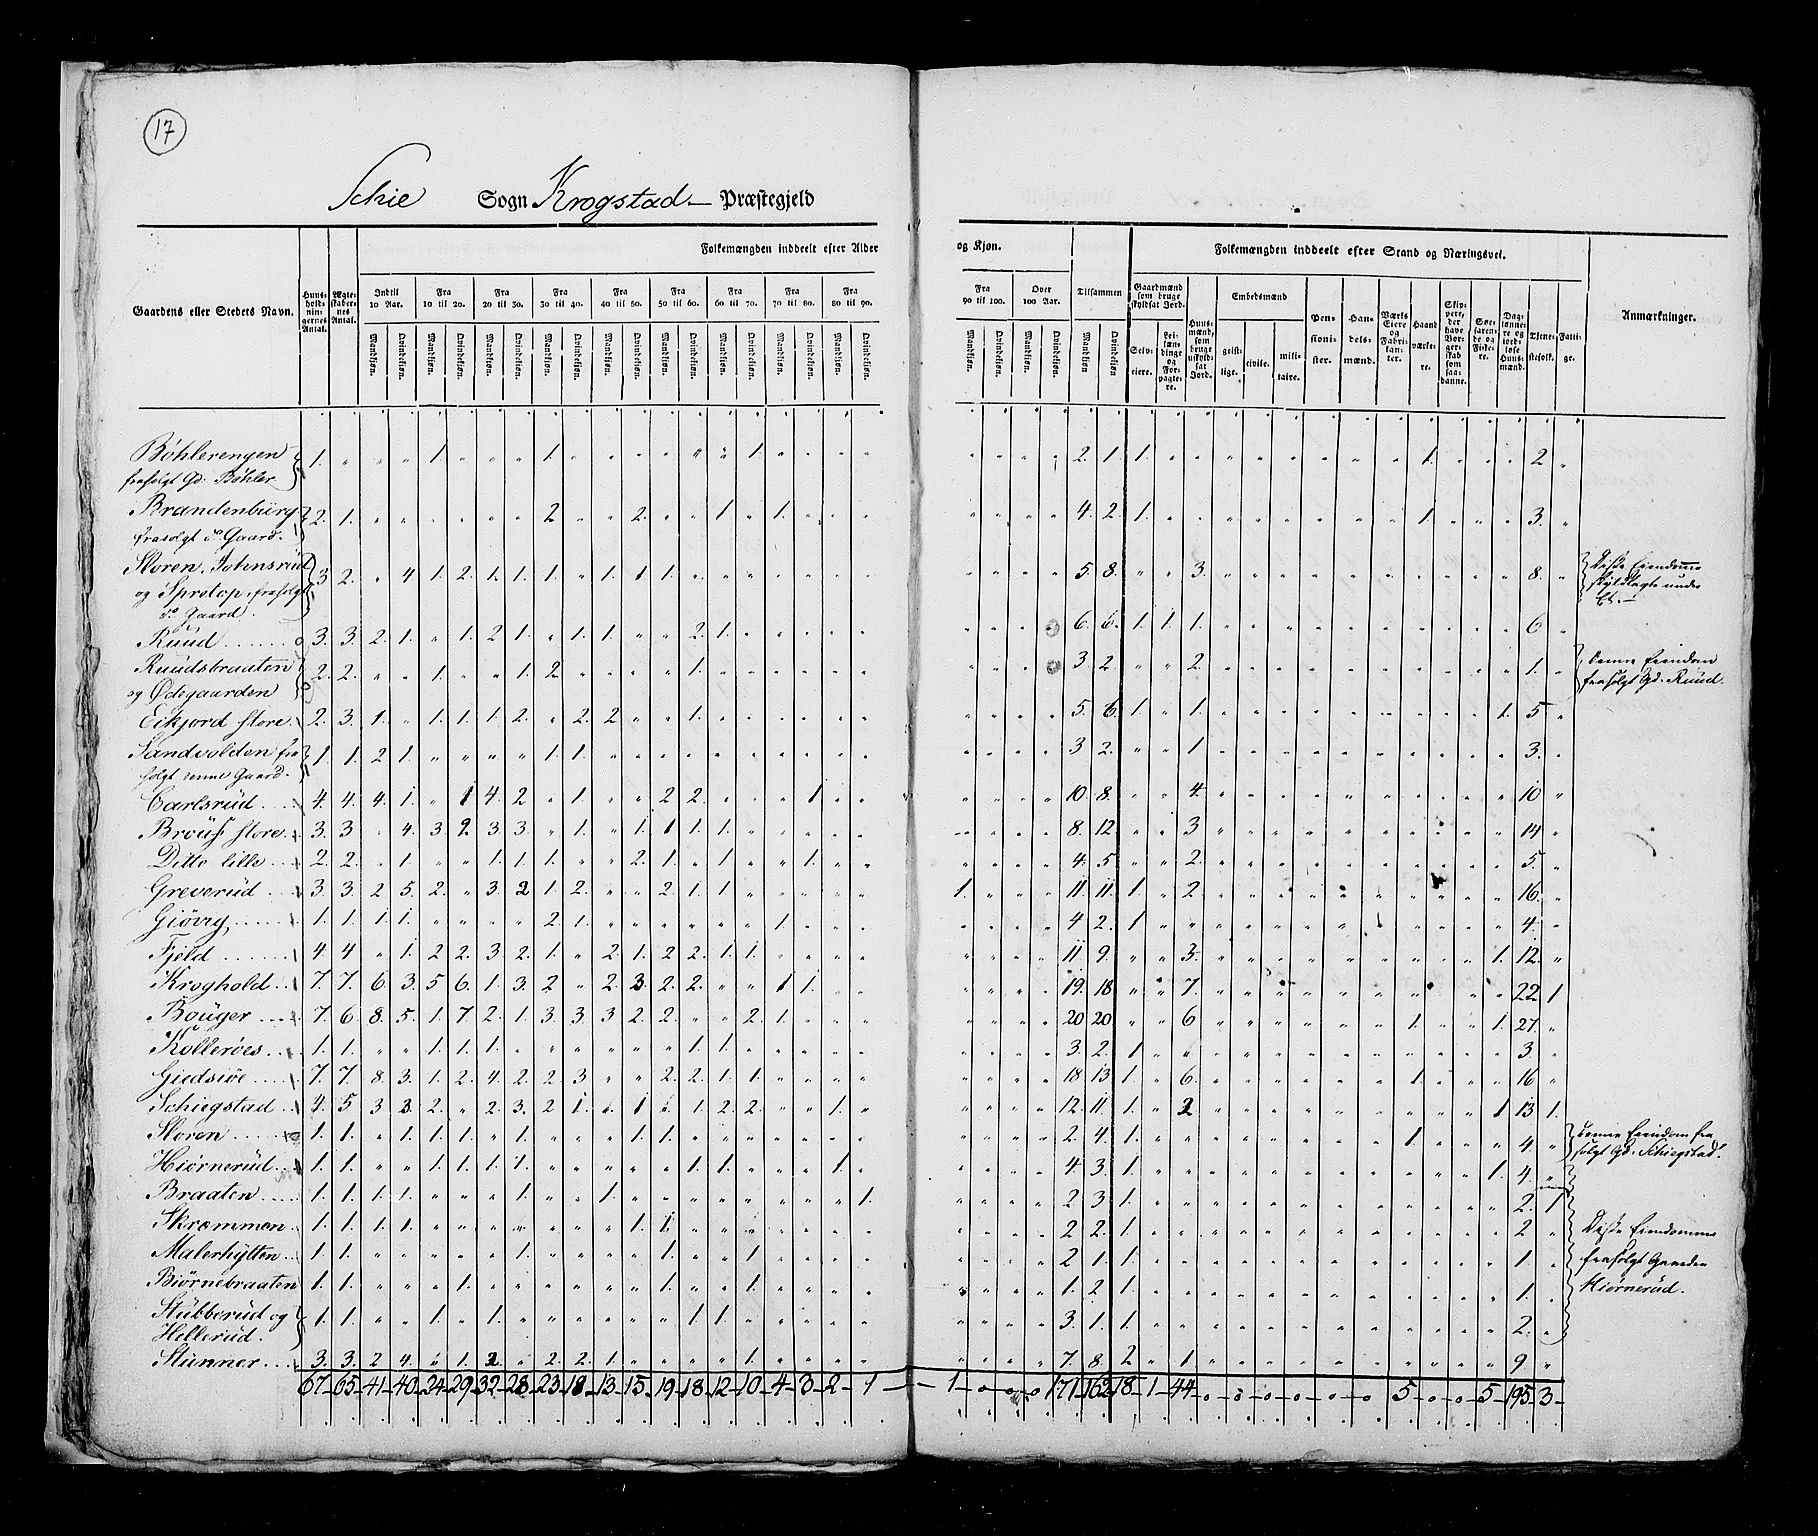 17
Schie Sogn Krogstad Præstegjeld
Gaardens eller Stedets Navn.
Huus-holdnin-gernes Antal.
Ægte-skaber-nes Antal.
Folkemængden inddeelt efter Alder og Kjøn.
Indtil 10 Aar. Fra 10 til 20. Fra 20 til 30. Fra 30 til 40. Fra 40 til 50. Fra 50 til 60. Fra 60 til 70. Fra 70 til 80. Fra 80 til 90. Fra 90 til 100. Over 100 Aar.
Mandkjøn. Qvindekjøn.
Tilsammen
Folkemængden inddeelt efter Stand og Næringsvei.
Gaardmænd som bruge skyldsat Jord.
Selv-eiere. Lei-læn-dinge og For-pagte-re.
Huus-mænd, som bruge uskyld-sat Jord.
Embedsmænd
geist-lige. civile. mili-taire.
Pen-sioni-ster. Han-dels-mænd. Værks Eiere og Fabri-kan-ter. Haand værke-re.
Skip-pere, der have Bor-ger-skab som saa-danne.
Søe-faren-de og Fiske-re.
Dag-lønne-re og jord-løse Huus-mænd.
Tjene-stefolk. Fatti-ge.
Anmærkninger.
Bøhlerengen frasolgt Gd. Bøhler 1. 1. 1. 1. 2. 1. 1. 1. 2
Brandenburg frasolgt do Gaard. 2. 1. 2. 2. 1. 1. 4. 2. 1. 1. 3.
Sloren, Johnsrud og Spretop, frasolgt do Gaard. 3. 2. 4 1. 2. 1. 1. 1. 1. 1. 1. 5. 8. 3. 8.
Ruud 3. 3. 2. 1. 1. 2. 1. 1. 1. 2. 1. 6. 6. 1. 1. 1. 6
Ruudsbraaten og Ødegaarden 2. 2. 1. 1. 2. 1. 3. 2. 2. 1. Denne Eiendom frasolgt Gd. Ruud.
Eikjord store. 2. 3. 1. 1. 1. 1. 2. 2. 2. 1. 5. 6. 1. 1. 1. 5
Sandvolden fra solgt denne Gaard. 1. 1. 2. 1. 1. 1. 3. 2. 1. 3.
Carlsrud 4. 4. 4. 1. 1 4. 2 1. 2 2. 1. 10. 8. 4. 10
Brouss store. 3. 3 4. 3. 2 3. 3. 1. 1. 1 1. 1. 1. 8. 12. 3 14
Ditto lille 2. 2. 1. 1. 1. 1. 2. 1. 1. 1. 4. 5. 2. 5.
Greverud 3. 3. 2 5. 2. 3. 2 1. 2. 2. 1. 1. 1. 11. 11. 1. 2. 16.
Giøvig 1. 1. 1. 1. 2. 1. 1. 4 2. 1 4.
Fjeld 4. 4 1. 2 2. 3 2. 1. 2. 1. 2 2. 1. 1. 11 9. 3. 1. 12.
Kroghold 7. 7. 6. 3. 5 6. 1. 3. 2 2. 3. 2. 2. 1 1. 19. 18. 7. 22. 1
Bouger 7. 6. 8. 5. 1. 7. 2. 1. 3. 3. 3 2. 2. 2. 1. 20 20 6 1. 1. 27.
Kolleroes 1. 1. 1. 1. 1. 1. 1. 3. 2. 1 3.
Giedsiøe 7. 7. 8. 3. 1. 2. 4. 2. 2. 3. 2. 2. 1. 1. 18. 13. 1. 6. 1. 16
Schiegstad 4. 5 3 3 2. 2. 3. 2 1. 1. 1. 2. 2. 1. 12. 11. 1. 2 1 13 1.
Sloren 1. 1. 1. 1. 1. 1. 1. 1. 2. 4. 1. 1. 4. Denne Eiendom fra solgt Gd. Schiegstad.
Hiørnerud 1. 1. 1. 1. 1. 1. 1. 1. 1. 4. 3. 1. 1. 4.
Braaten 1. 1. 1. 1. 1. 1. 1. 2. 3. 1. 2. 1
Skrømmen 1. 1. 1. 1. 1. 1. 2 2. 1. 2
Malerhytten 1. 1. 1. 1. 1. 2 1. 1. 1. Disse Eiendomme frasolgt Gaarden Hiørnerud.
Biørnebraaten 1. 1. 1. 1. 1. 1. 2 1. 1.
Stubberud og Hellerud. 1. 1. 1. 1. 1. 1. 3. 1. 1. 2.
Stunner 3. 3. 2 4. 1. 2. 2 2. 1. 1. 7. 8. 2 1 9
67. 65. 41. 40. 24. 29. 32. 28. 23. 18. 13. 15. 19. 18. 12. 10. 4 3 2 1 1 0 0 0 171. 162. 18 1 44 0 0 0 0 0 0 5 0 0 5 195. 3